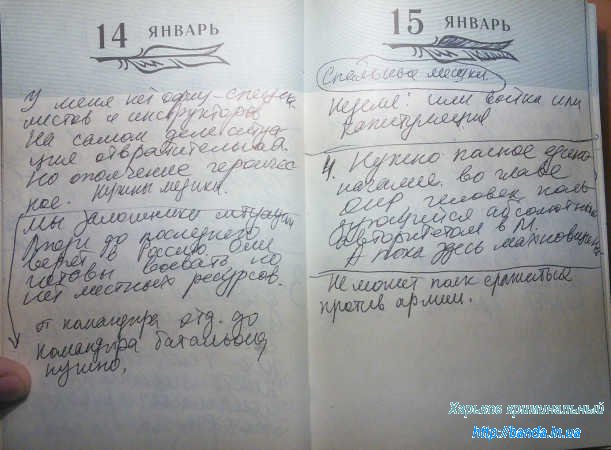 14 ЯНВАРЬ
У меня нет одну - специа
листов и инструкторы
На самом деле ситуа
ция отвратительная
Но ополчение героичес
кое. Нужны медики.
Мы заложники ситуации
Люди до последнего
верят в Россию. Они
готовы воевать но
нет местных ресурсов.
от командира отд. до
командира батальона
нужно,
15 ЯНВАРЬ
Спальные мешки
Неделя: или война или
капитуляция
4. Нужно полное едино
началие. во главе
человек поль
зующийся абсолютным
авторитетом в М.
А пока здесь махновщина
Не может полк сражаться
против армии.
Харьков криминальный
http://banda.in.ua